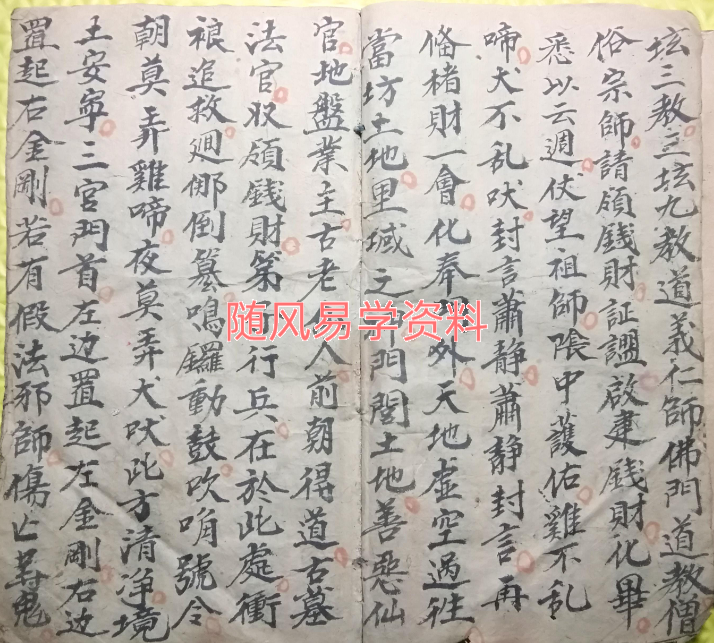 坛三教三坛九教道義仁師佛門道教僧
俗宗師請領錢財証盟啟建錢財化畢
悉以云週伏望祖師隂中護佑雞不乱
啼犬不乱吠封言蕭静蕭静封言再
俻楮財一會化奉境外天地虚空過徃
當坊土地里域之神門閭土地善惡仙
官地盤業主古老仙人前朝得道古墓
法官收領錢財弟子行兵在於此處衝
裉追救迴倒鳴鑼動鼓吹角號令
朝莫弄雞啼夜莫弄犬吠此方清净境
土安寧三官門首左边置起左金剛右边
置起右金剛若有假法邪師傷亡鬼
随风易学资料